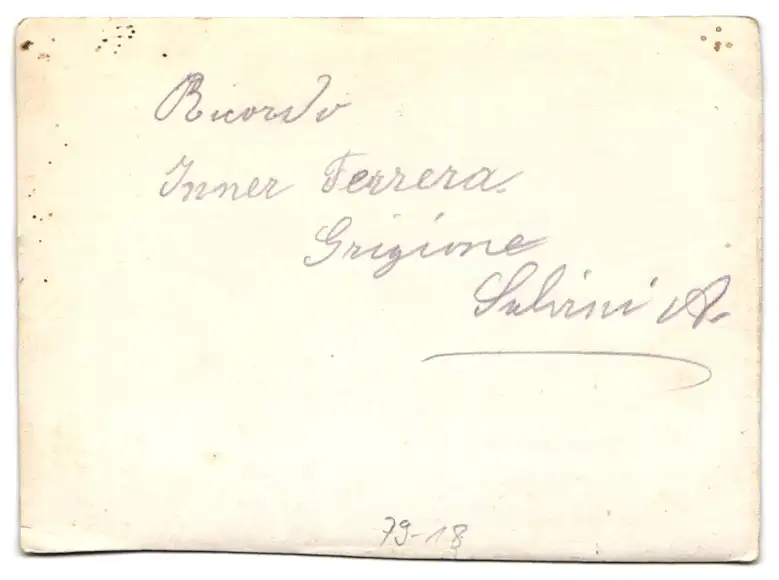 Ricordo
Inner Ferrera.
Grigione
Salvini A.
79-18